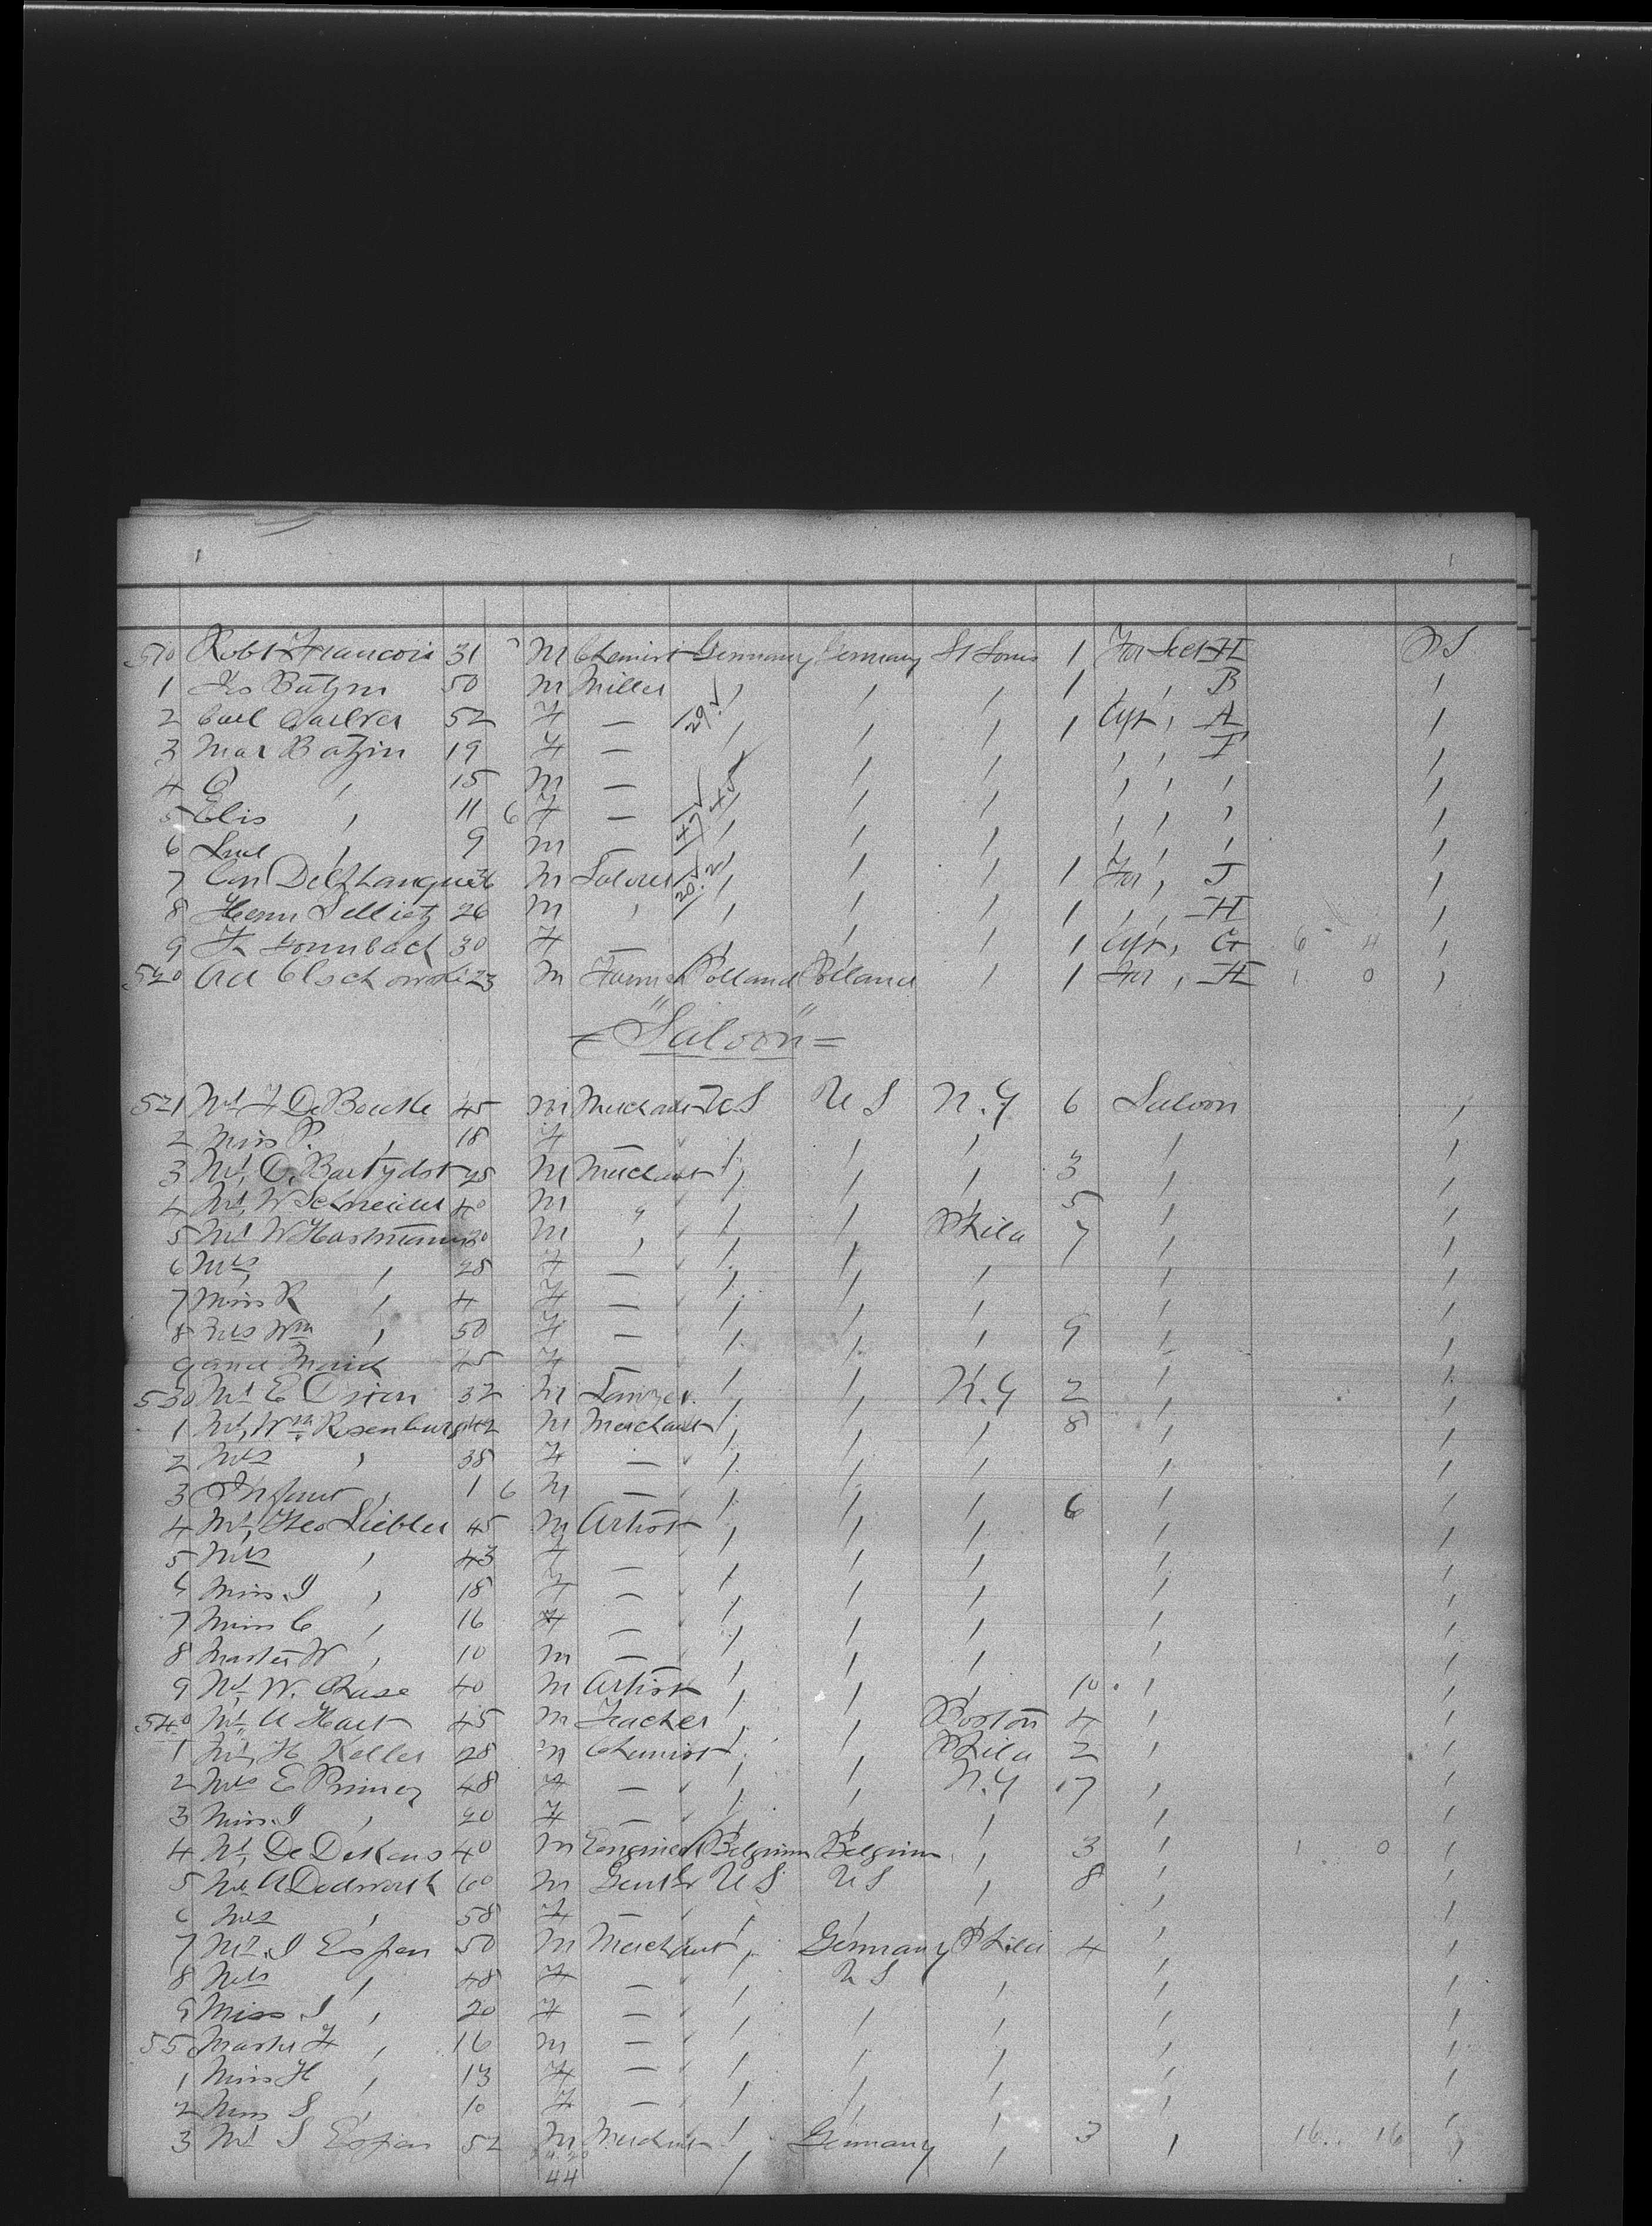 510 Robt Francois 31 M Chemist Germany Germany St Louis 1 For Sect H P S
1 Jos Batzin 50 M Miller , , , 1 , , B ,
2 Carl 52 F — , , , 1 Aft , A ,
3 Mar Batzin 19 F — , , , , , F ,
4 , 15 M — , , , , , , ,
5 Elis , 11 6 F — , , , , , , ,
6 , 9 M — , , , , , , ,
7 Con 36 M , , , 1 For , J ,
8 Herm 26 M , , , , 1 , , H ,
9 30 F — , , , 1 Aft , G 6 4 ,
520 23 M Farmer Polland Polland , 1 For , H 1 0 ,
= "Saloon" =
521 Mr F De 45 M Merchant U S U S N.Y 6 Saloon ,
2 Miss P. , 18 F — , , , , ,
3 Mr, O. 25 M Merchant , , , 3 , ,
4 Mr, W Schneider 40 M " , , , 5 , ,
5 Mr W Hartmann 30 M , , , Phila 7 , ,
6 Mrs , 28 F — , , , , ,
7 Miss R , 4 F — , , , , ,
8 Mrs Wm , 50 F — , , , 9 , ,
9 and Maid 45 F — , , , ,
530 Mr E Dixon 32 M Lawyer , , N.Y 2 , ,
1 Mr, Wm Rosenburg 42 M Merchant , , , 8 , ,
2 Mrs , 38 F — , , , , ,
3 Infant , 1 6 M — , , , , ,
4 Mr, Theo Liebler 45 M Artist , , , 6 , ,
5 Mrs , 43 F — , , , , ,
6 Miss J , 18 F — , , , , ,
7 Miss C , 16 F — , , , , ,
8 Master W , 10 M — , , , , ,
9 Mr, W. Chase 40 M Artist , , , 10 , ,
540 Mr, A Hart 45 M Teacher , , Boston 4 , ,
1 Mr, H Keller 28 M Chemist , , Phila 2 , ,
2 Mrs E 48 F — , , N.Y 17 , ,
3 Miss J , 20 F — , , , , ,
4 Mr, De 40 M Engineer Belgium Belgium , 3 , 1 0 ,
5 Mr A Dodworth 60 M U S U S , 8 , ,
6 Mrs , 58 F — , , , , ,
7 Mr. J Espen 50 M Merchant , Germany Phila 4 , ,
8 Mrs , 48 F — , U S , , ,
9 Miss J , 20 F — , , , , ,
55 Master F , 16 M — , , , , ,
1 Miss H , 13 F — , , , , ,
2 Miss S , 10 F — , , , , ,
3 Mr J Espen 52 M Merchant , Germany , 3 , 16 16 ,
44